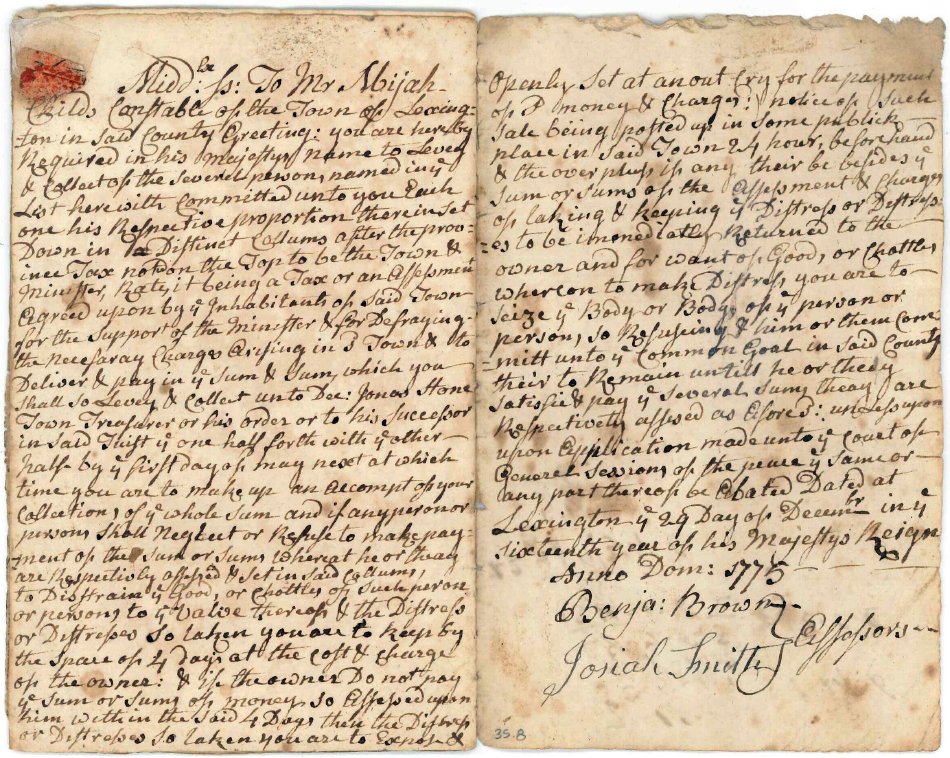 Midd:lx ss: To Mr Abijah
Childs Constable of the Town of Lexing-
ton in said County Greeting: you are hereby
Required in his majestys name to Levey
& Collect of the severel persons named in ye
List here with Committed unto you Each
one his Respective proportion there in set
Down in Distinct Collums after the prov-
ince Tax noted on the Top to be the Town &
Minister Rate, it being a Tax or an Assesment
Agreed upon by ye Inhabitants of said Town
for the Support of the Minister & for Defraying-
the Necesaray Charges Arising in sd Town & to
Deliver & pay in ye Sum & Sums which you
shall so Levey & Collect unto Dec: Jonas Stone
Town Treasurer or his order or to his successor
in said Trust ye one half forth with ye other
half by ye first day of may next at which
time you are to make up an accompt of your
Collections of ye whole sum and if any person or
persons shall Neglect or Refuse to make pay-
ment of the sum or sums whereat he or theay
are Respectivly assesed & set in said Collums,
to Disstrain ye Goods or Chattles of such person
or persons to ye Value thereof & the Distress
or Distresses so taken you are to keep by
the space of 4 days at the Cost & Charge
of the owner: & if the owner Do not pay
ye sum or sums of money so Assessed upon
him with in the said 4 Days then the Distress
or Distresses so taken you are to Expose &
Openly Set at an out Cry for the payment
of sd money & Charges: notice of such
sale being posted up in some publick
place in said Town 24 hours before hand
& the over pluss if any their be besides ye
sum or sums of the Assessment & Charges
of taking & keeping ye Distress or Distress-
es to be immediatly Returned to the
owner and for want of Goods or Chattles
whereon to make Distress you are to
seize ye Body or Bodys of ye person or
persons so Refuseing & him or them Com
mitt unto ye Common Goal in said County
their to Remain untill he or theay
satisfie & pay ye several sums theay are
Respectively assesed as Afores:d unless upon
upon Application made unto ye Court of
General sessions of the peace ye same or
any part thereof be Abated Dated at
Lexington ye 29 Day of Decembr in ye
sixteenth year of his Majestys Reign
Anno Dom: 1775
Benja: Brown
Assessors
Josiah Smith
35.8